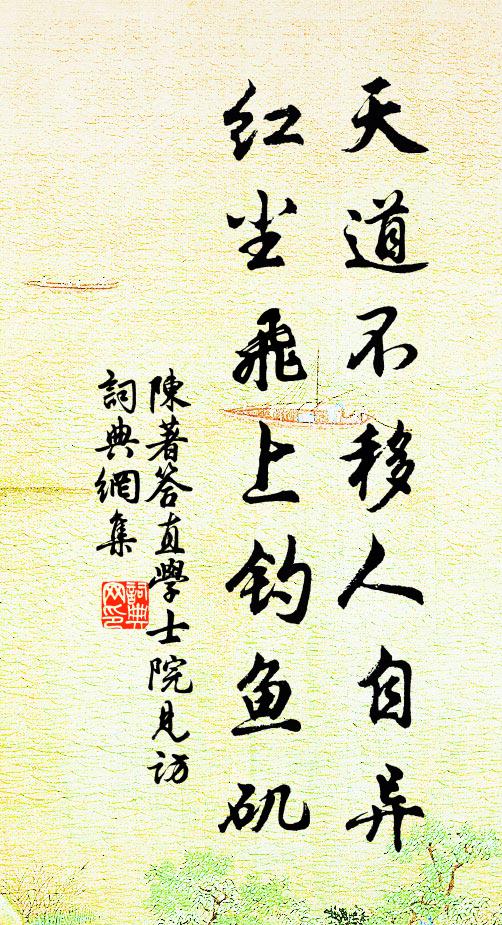 天道不移人自异
红尘飛上钓鱼矶
陳著答直學士院見访
詞典網集
詞典
网印